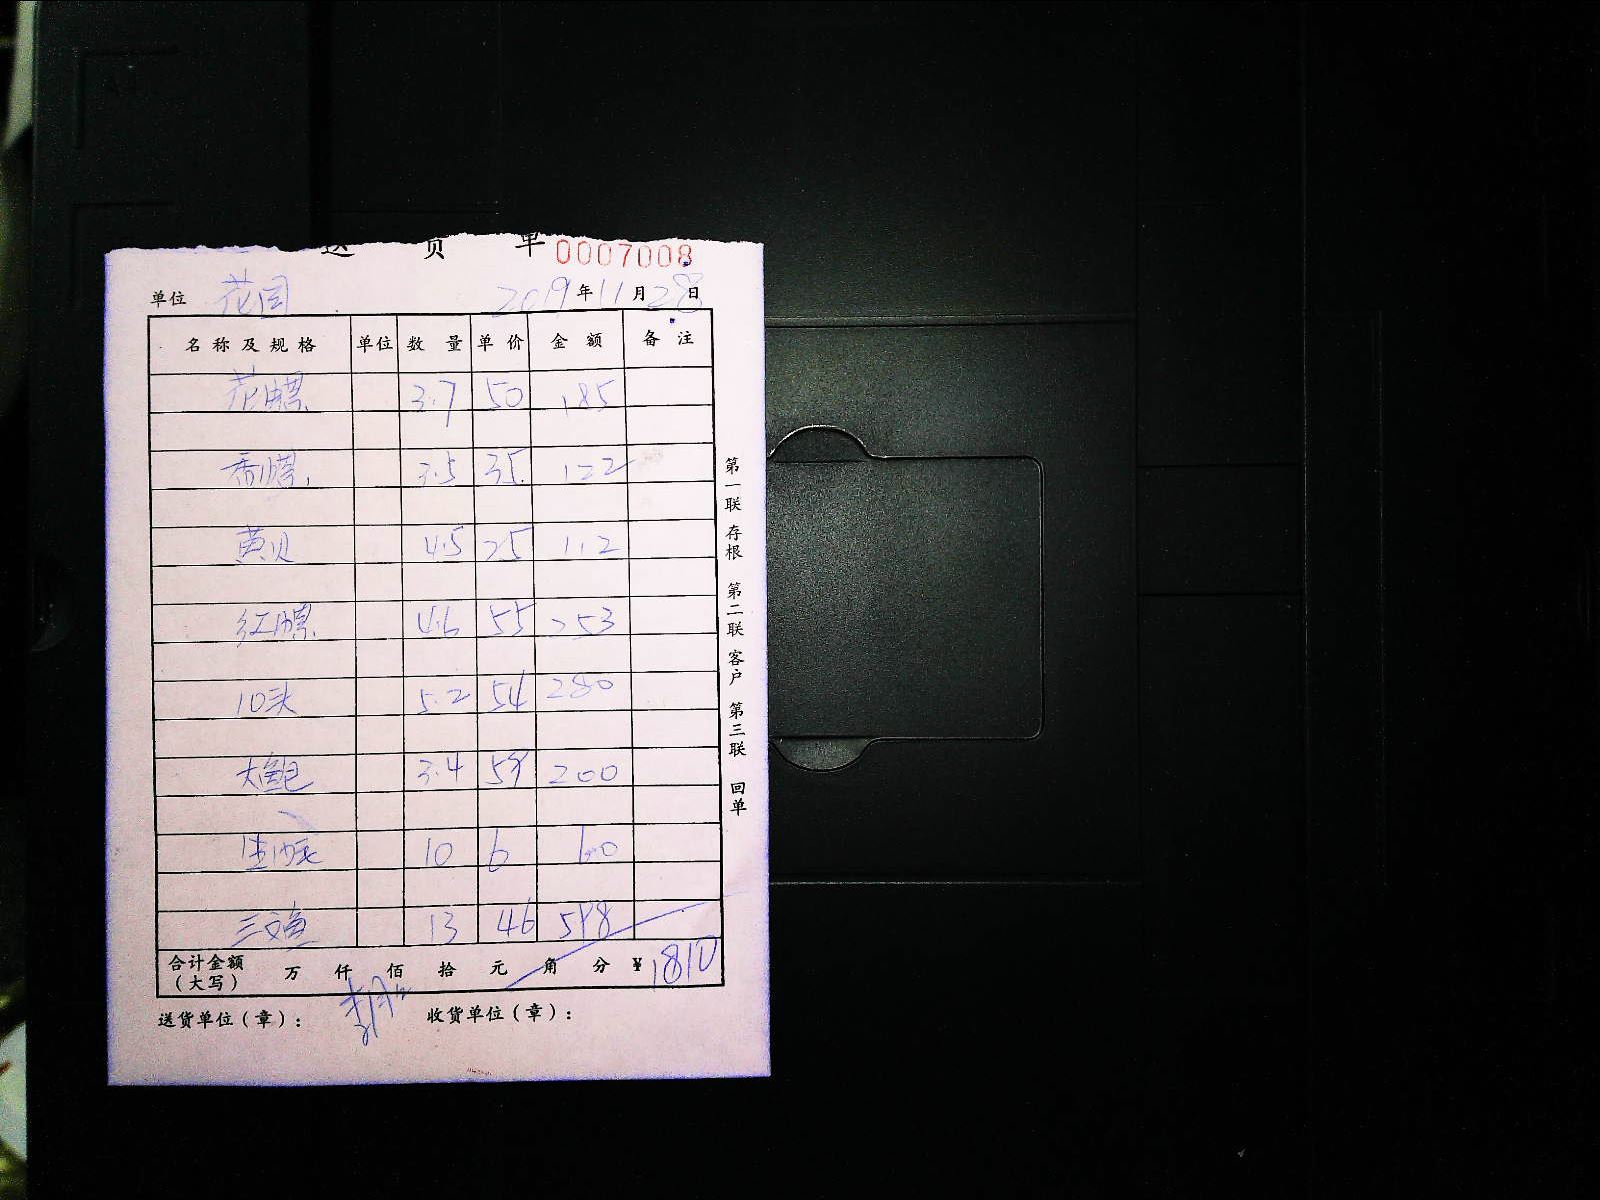 送货单 0007008
单位 花园 2019年11月28日
名称及规格 单位 数量 单价 金额 备注
花螺 3.7 50 185
香螺 3.5 35 122
黄贝 4.5 25 112
红螺 4.6 55 253
10头 5.2 54 280
大鲍 3.4 59 200
生蚝 10 6 60
三文鱼 13 46 598
合计金额（大写） 万 仟 佰 拾 元 角 分 ¥1810
送货单位（章）： 收货单位（章）：
第一联 存根 第二联 客户 第三联 回单